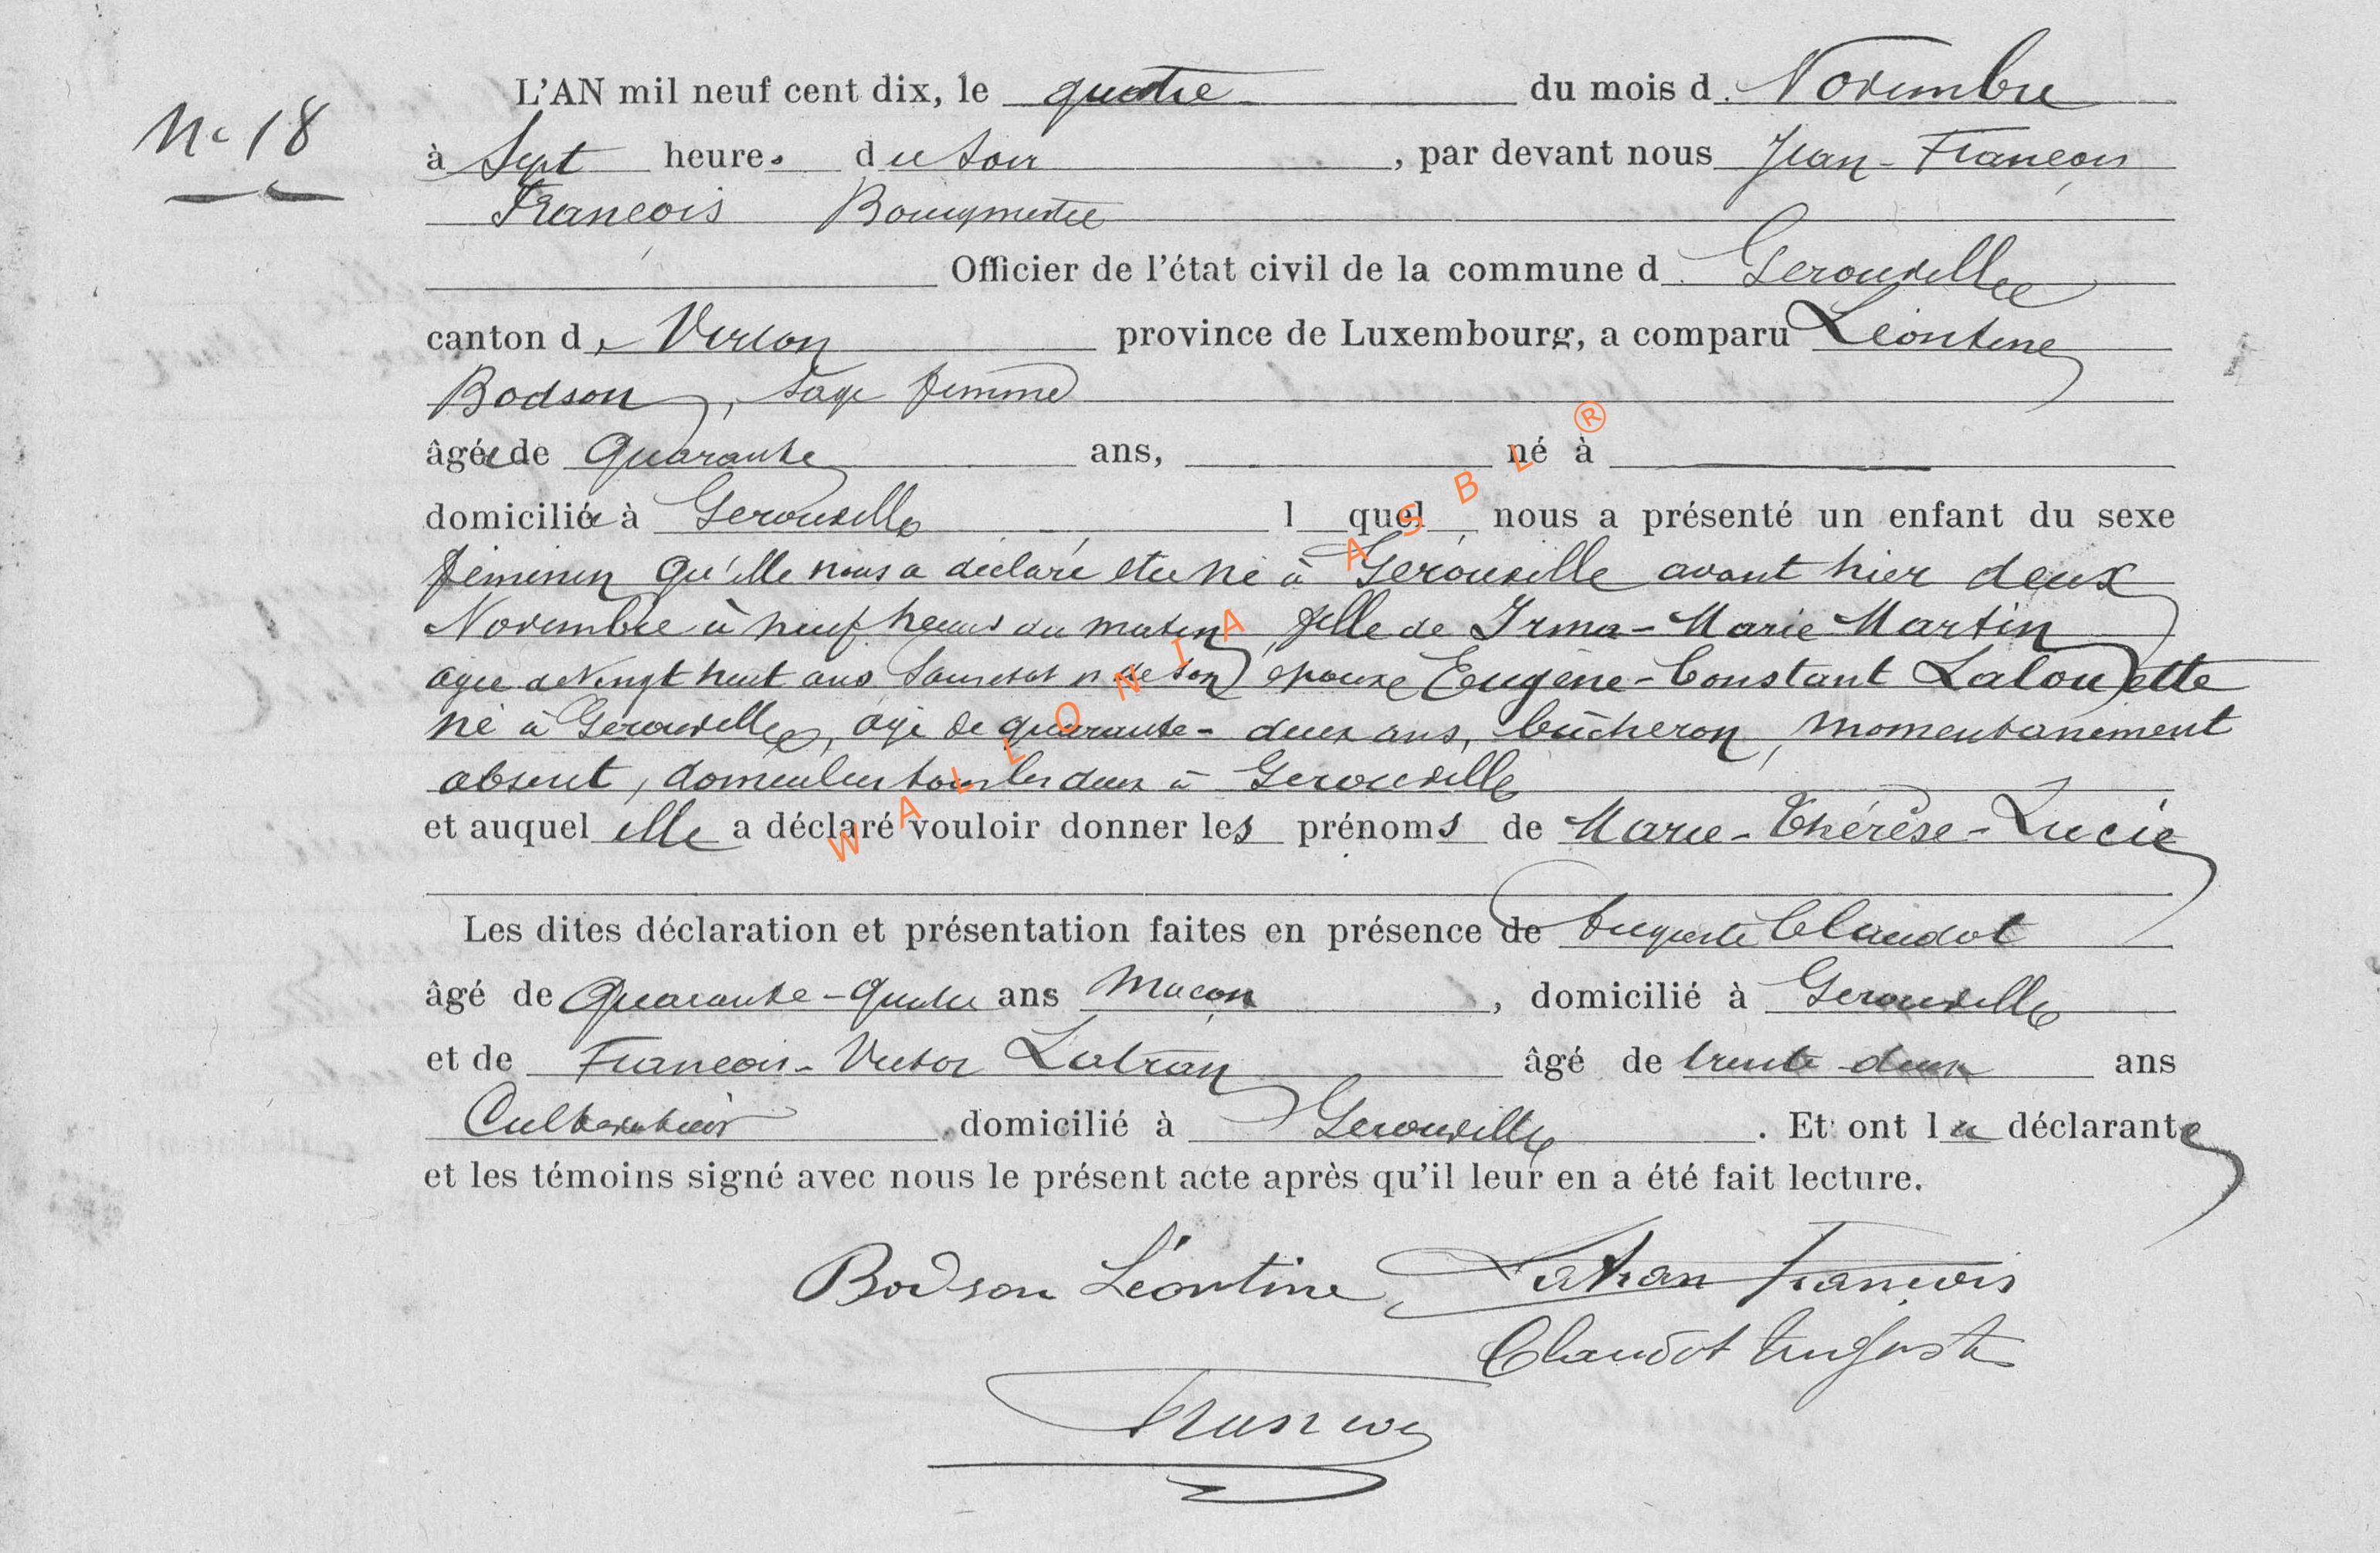 N° 18
L'AN mil neuf cent dix, le quatre du mois de Novembre
à Sept heures du soir, par devant nous Jean-François
François Bourgmestre
Officier de l'état civil de la commune d Gerouville
canton de Virton province de Luxembourg, a comparu Léontine
Bodson, sage femme
âgée de Quarante ans, né à
domiciliée à Gerouville l quel nous a présenté un enfant du sexe
féminin qu'elle nous a déclaré être né à Gérouville avant hier deux
Novembre à neuf heures du matin, fille de Irma-Marie Martin
agée de vingt huit ans de son époux Eugène-Constant Lalouette
né à Gerouville, agé de quarante-deux ans, bûcheron, momentanement
absent, domiciliés tous les deux à Gerouville
et auquel elle a déclaré vouloir donner les prénoms de Marie-Thérèse-Lucie
Les dites déclaration et présentation faites en présence de Auguste Claudot
âgé de Quarante-quatre ans Maçon, domicilié à Gerouville
et de François-Victor Latran âgé de trente deux ans
Cultivateur domicilié à Gerouville. Et ont la déclarante
et les témoins signé avec nous le présent acte après qu'il leur en a été fait lecture.
Bodson Léontine Latran François
Claudot Auguste
François
WALLONIA ASBL ®